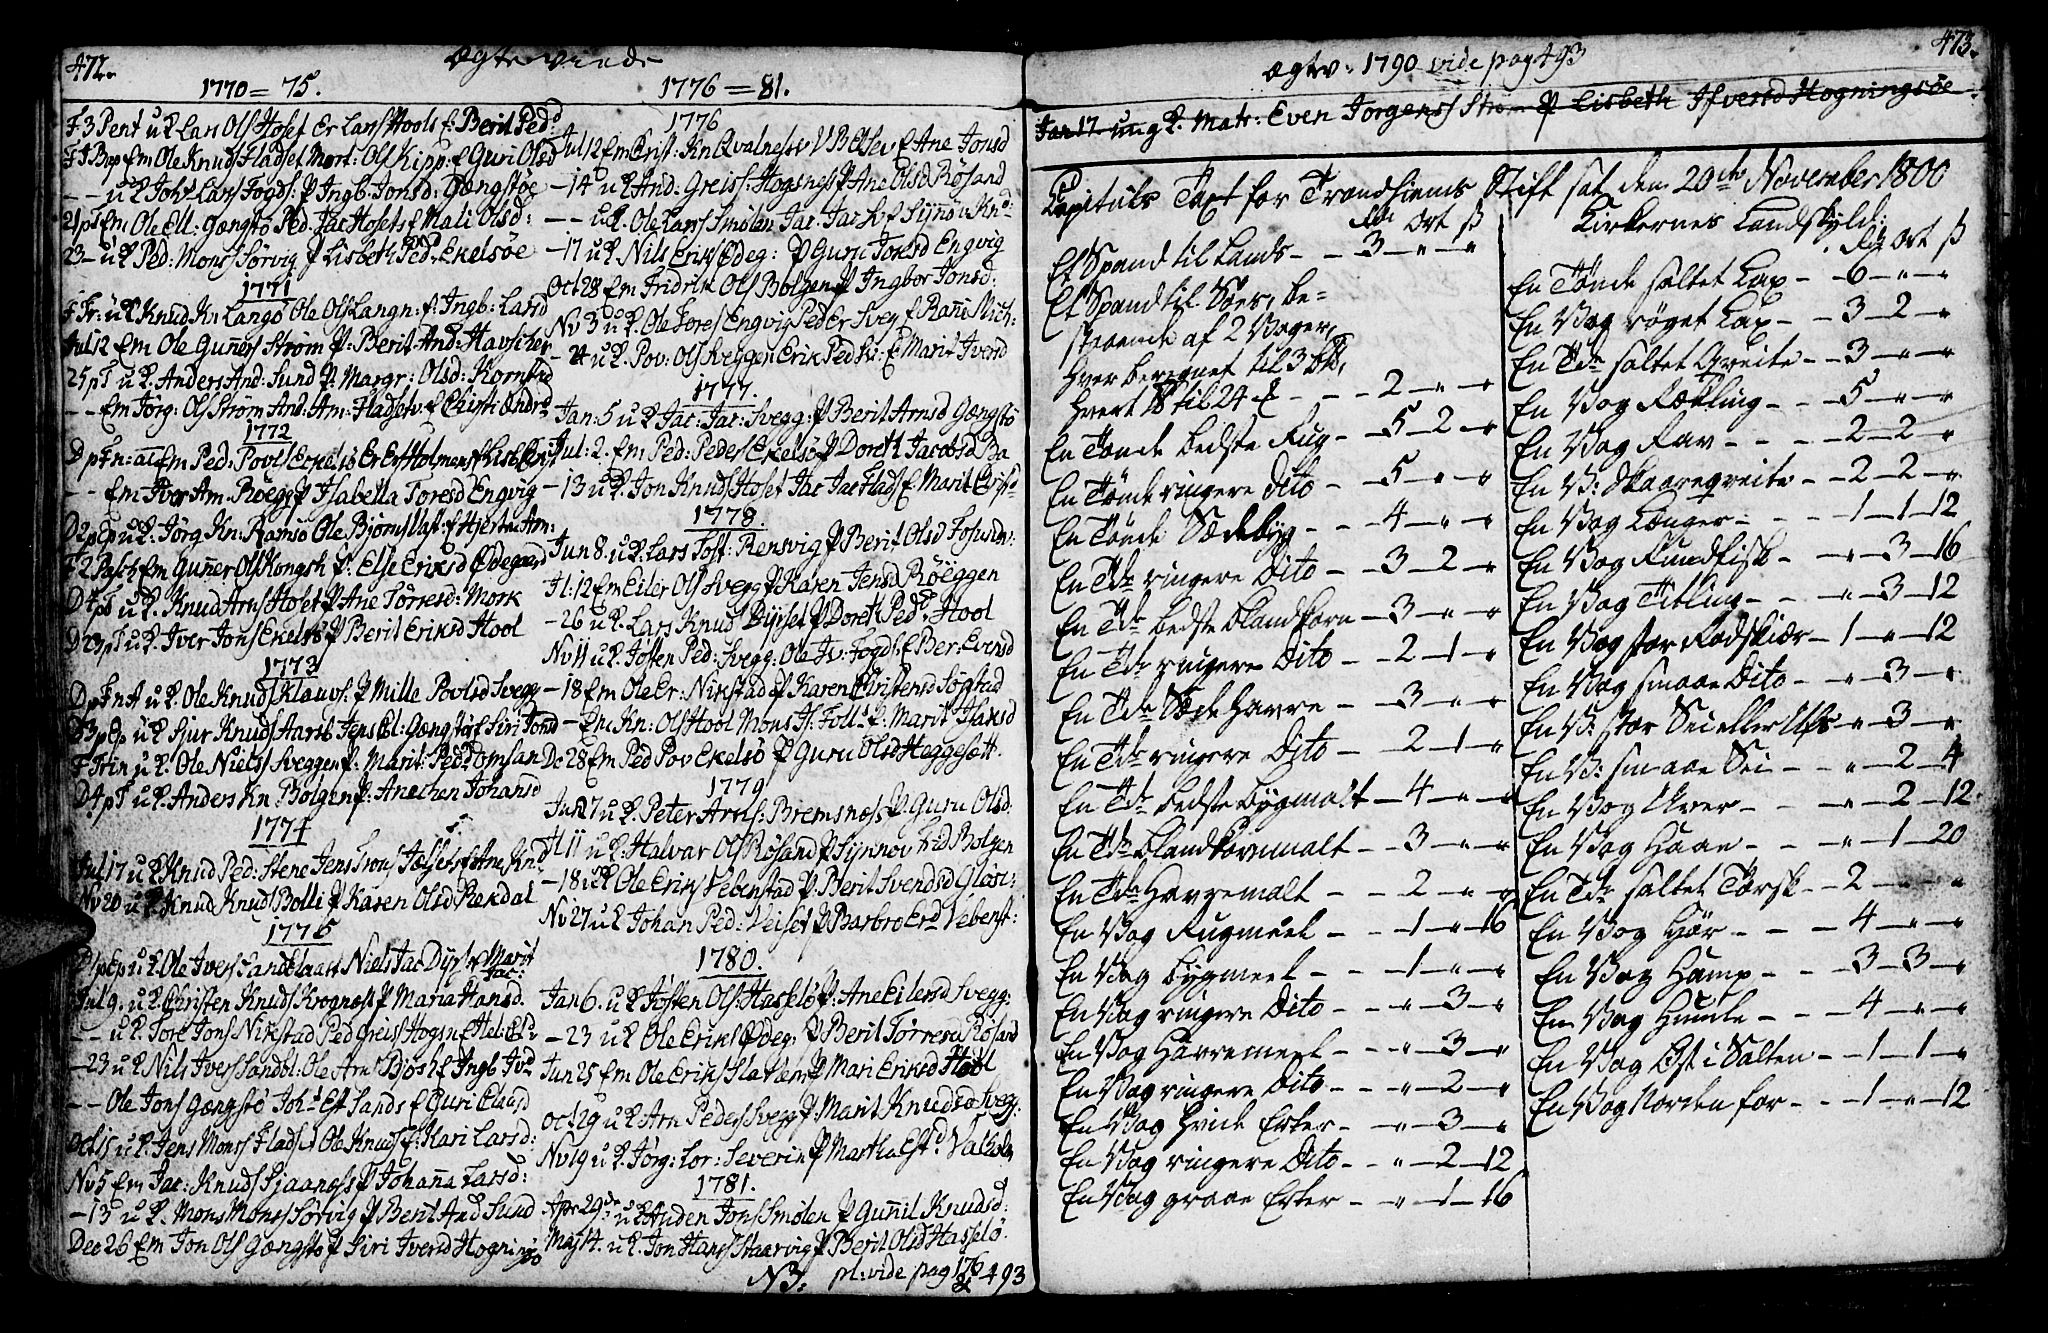 472.
Ægteviede
1770=75.
F 3 Pent u K Lars Ols Hoset Er Lars Hools f: Berit Ped:
Em Ole Knuds Fladset Mort: Ols Kipp: f Guri Olsd
-- u K Joh: Lars Fogds: P Ingb: Jonsd: Gængstøe
21 pT Em Ole Ell: Gængstø Ped Jac Hosets f Mali Olsd:
23- u K Ped: Mons Sørvig P Lisbeth Ped: Ekelsøe
1771
F Fr: u K Knud Kr: Langø Ole Ols Langn: f: Ingb: Larsd
Jul 12 Em Ole Guners Strøm P: Berit And: Havscher
25 pT u K. Anders And: Sund P: Margr: Olsd: Kornstad
-- Em Jørg: Ols Strøm And: Am: Fladsetv: f Chirsti Andr:
1772
Em Ped: Povls Eckelsø Er Er Holmen f Lisb
-- Em Iver Am. Røegg P Isabella Toresd Engvig
D 2 pEp u K: Jørg Kn: Ramsø Ole Bjørns f: Hjertru Am:
F 2 Pasch Em Guner Ols Kongsh P: Else Eriksd Ødegaard
D 4 pT u K. Knud Arns Hoset P Ane Tørresd: Mork
D 23 pT u K. Iver Jons Ekelsø P Berit Eriksd Hool
1773
u K. Ole Knuds Klauvs: P Mille Povlsd Svegg
D 3 pEp u K Sjur Knuds Aarsb Jens El: Gængstø f Siri Jonsd
F Trin u K. Ole Niels Sveggen P: Marit: Peds Tomsan
D 4 pT u K. Anders Kn. Bolgen P. Anechen Johansd
1774
Jul 17 u K Knud Ped: Stene Jens Trons f Ane Knd
Nv 20 u K Knud Knuds Bolli P Karen Olsd Rekdal
1775
u K. Ole Ivers Niels Jac Dyrs f Marit Jac:
Jul 9. u K Christen Knuds Krognæss P Maria Hansd.
-- u K. Tore Jons Nikstad Ped Greis Hogsn f Hel: Els:
-23 u K Nils Ivers Sandbl: Ole Arn Bjøsh f Ingb Ivd
-- Ole Jons Gængstø Joh: Est Sands f Guri Elaasd
Oct 15 u K. Jens Mons Flads: Ole Knuds f: Kari Larsd:
Nv 5 Em Jac: Knuds P Johanna Larsd:
-13 u K. Mons Mons Sørvig P Berit Andd Sund
Dec 26 Em Jon Ols Gængstø P Siri Iversd Hognings
1776=81.
1776
Jul 12 Em Crist: Kn Qvalnes f Ane Jonsd
-14 u K And: Greiss: Hogsnes P Ane Olsd Røsand
-- u K. Ole Lars Smølen Jac: Jac f Synnøv Knd:
-17 u K Nils Eriks Ødeg: P Guru Toresd Engvig
Oct 28 Em Fridrik Ols Bolgen P Ingbor Jonsd:
Nv 3 u K. Ole Tores Engvig Ped Er Sveg f Rane Mich:
-4 u K. Pov: Ols Sveggen Erik Ped f: Marit Iversd
1777.
Jan: 5 u K Jac: Jac: Svegg: P Berit Arnsd Gængstø
Jul: 2. Em Ped: Peders Ekelsø P Doreth Jacobsd
-13 u K. Jon Knuds Hoset Jac Jac Flads f Marit
1778.
Jun 8. u K. Lars Tost: Rensvig P Berit Olsd Fosund:
Jl: 12 Em Eiler Ols Svegg P Karen Jensd Røeggen
-26 u K. Lars Knud Dyrset P Doreth Ped: Hool
Nv 11 u K. Josten Ped: Svegg: Ole Iv: Fogds. f Ber: Evensd
-18 Em Ole Er: Nikstad P Karen Christensd Søgstad
- Em Kn: Ols Hool Mons H: Foll: P. Marit Hansd
De 28 Em Ped Pov Ekelsø P Guru Olsd Heggesætt.
1779
u K. Peter Arns: Bremsnæss P. Guru Olsd.
Jl 11 u K. Halvar Ols Røsand P Synnøv Bolgen
-18 u K Ole Eriks Vebenstad P: Berit Svendsd
Nv 27 u K. Johan Ped: Veiset P Barbro Erd Vebenst:
1780.
Jan 6. u K Josten Ols: Hasselø P. Ane Eilersd Svegg:
-23 u K Ole Eriks Ødeg: P Berit Tørresd Røsand
Jun 25 Em Ole Eriks P Mari Eriksd Hool
Oct 29 u K Arn Peders Svegg P Marit Knudsd Svegg:
Nv 19 u K. Jørg: Lor: Severin P Martha Est: Valholm
1781.
Apr 29: u K Anden Jons Smølen P Gunil Knudsd:
Maj 4. u K. Jon Hans Staarvig P Berit Olsd Hasselø.
NB. pl: vide pag 176 & 493
473.
Ægtv: 1790 vide pag 493
Jan 17 ung K. Matr: Even Jorgenss Strøm P Lisbeth Ifversd Hogningsøe
Capituls Taxt for Trondhiems Stift sat den 20de November 1800
Rdr Ort ß
Et Spand til Lands - - 3 - " - "
Et Spand til Søes, be-
staaende af 2 Voger,
hver beregnet til 3 Bd,
hvert til 24 ß - - - 2 - " - "
En Tønde bedste Rug - 5 - 2 - "
En Tønde ringere Dito - 5 - " - "
En Tønde Sædebyg - - 4 - " - "
En Tde ringere Dito - 3 - 2 - "
En Tde bedste Blandkorn - 3 - " - "
En Tde ringere Dito - - 2 - 1 - "
En Tde Sæde Havre - - 3 - " - "
En Tde ringere Dito - 2 - 1 - "
En Tde bedste Bygmalt - 4 - " - "
En Tde Blandkornmalt - 3 - " - "
En Tde Havremalt - - 2 - " - "
En Vog Rugmeel - - 1 - " - 16
En Vog Bygmeel - - 1 - " - "
En Vog ringere Dito - - " - 3 - "
En Vog Havremeel - - " - 3 - "
En Vog ringere Dito - - " - 2 - "
En Vog hvide Erter - - " - 3 - "
En Vog ringere Dito - - " - 2 - 12
En Vog graae Erter - - " - 1 - 16
Kirkernes Landskyld:
Rdr Ort ß
En Tønde saltet Lax - 6 - " - "
En Vog røget Lax - - 3 - 2 - "
En Tde saltet Qveite - - 3 - " - "
En Vog Rækling - - 5 - " - "
En Vog Rav - - - 2 - 2 - "
En V: Skaareqveite - - 2 - 2 - "
En Vog Længer - - - 1 - 1 - 12
En Vog Rundfisk - - " - 3 - 16
En Vog Titling - - - " - 3 - 12
En Vog stor Rodskiær - 1 - " - 12
En Vog smaae Dito - - " - 3 - "
En V: stor Sei eller Ufs - " - 3 - "
En V: smaae Sei - - " - 2 - 4
En Vog Uer - - - " - 2 - 12
En Vog Haae - - - " - 1 - 20
En Tde saltet Torsk - - 2 - " - "
En Vog Hør - - - - 4 - " - "
En Vog Hamp - - - 3 - 3 - "
En Vog Humle - - - 4 - " - "
En Vog Ost i Salten - - 1 - 1 - "
En Vog Norden for - - - 1 - " - 12